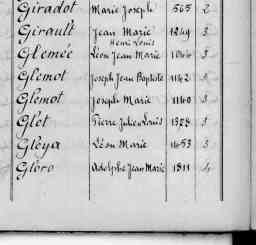 Giradot Marie Joseph 565 2
Girault Jean Marie 1249 3
Henri Louis
Glemée Léon Jean Marie 1044 3
Glemot Joseph Jean Baptiste 1142 3
Glemot Joseph Marie 1140 3
Glet Pierre Julien Louis 1328 3
Gléya Léon Marie 1453 3
Adolphe Jean Marie 1811 4